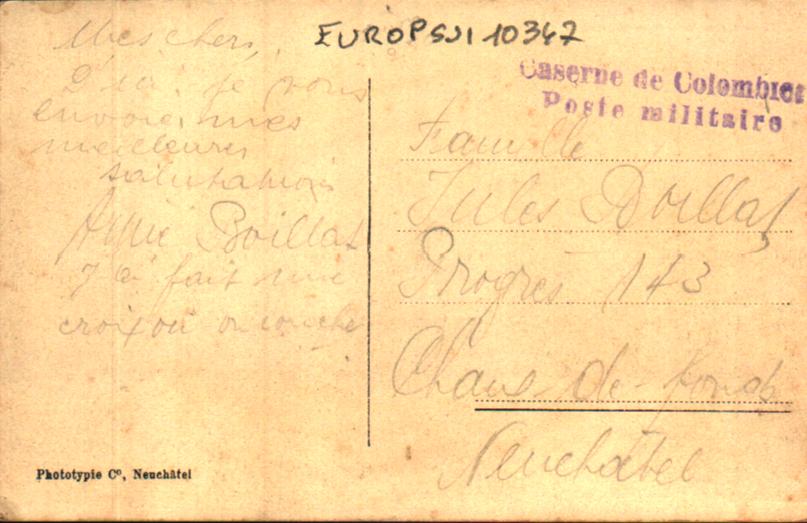 EUROPSUI 10347
Caserne de Colombier
Poste militaire
Mes chers,
je vous
envoie mes
meilleures
salutations
Boillat
J'ai fait une
croix ou on couche
Famille
Jules Boillat
Progrès 143
Chaux-de-fonds
Neuchâtel
Phototypie Co, Neuchâtel